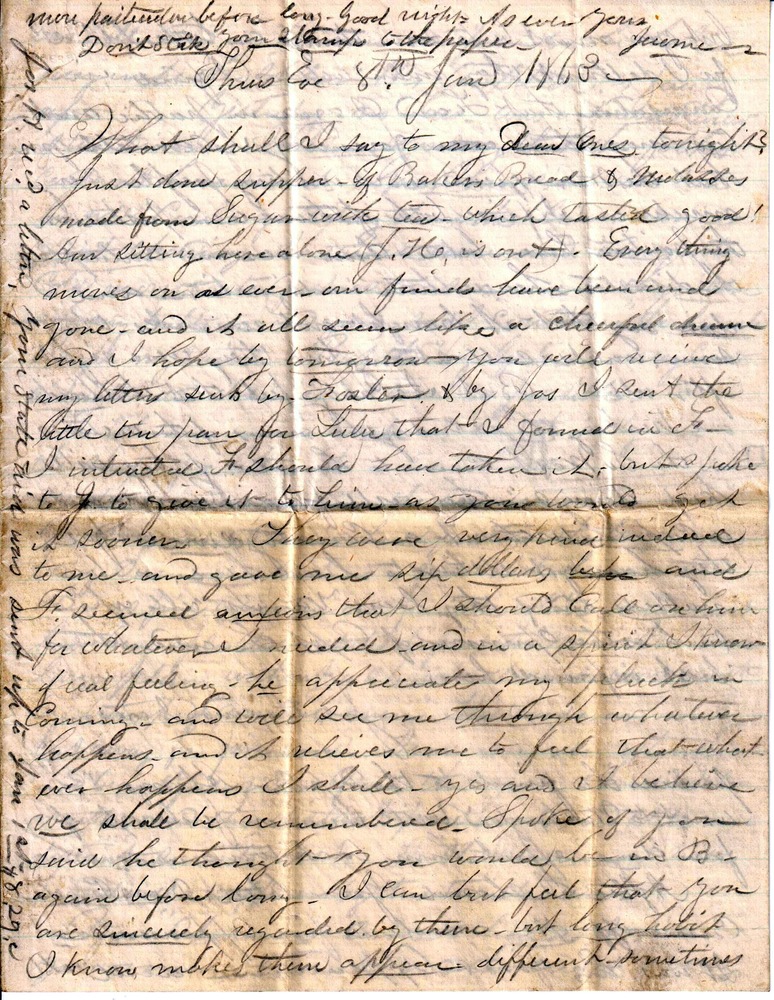 more particular before long. Good night. As ever yours
Don't stick your stamp to the paper Jerome
Thurs Eve 8th Jan 1863
What shall I say to my Dear Ones tonight?
Just done supper of Bakers Bread & Molasses
made from Sugar with tea which tasted good!
Am sitting here alone (J. H. is out). Every thing
moves on as ever - our friends have been and
gone - and it all seems like a cheerful dream
and I hope by tomorrow you will receive
my letter sent by Foster & by Jos I sent the
little tin pan for Lulu that I found in F-
I intended F should have taken it - but spoke
to J. to give it to him as you would get
it sooner They were very kind indeed
to me - and gave me six dollars and
F. seemed anxious that I should call on him
for whatever I needed - and in a spirit I know
of real feeling - he appreciate my pluck in
coming - and will see me through whatever
happens - and it relieves me to feel that what-
ever happens I shall - yes and I believe
we shall be remembered - Spoke of you
said he thought you would be in B-
again before long - I can but feel that you
are sincerely regarded by them - but long habit
I know makes them appear different sometimes
Jos. H. rec'd a letter, your State aid was sent up to Jan 1st - 48.29.c